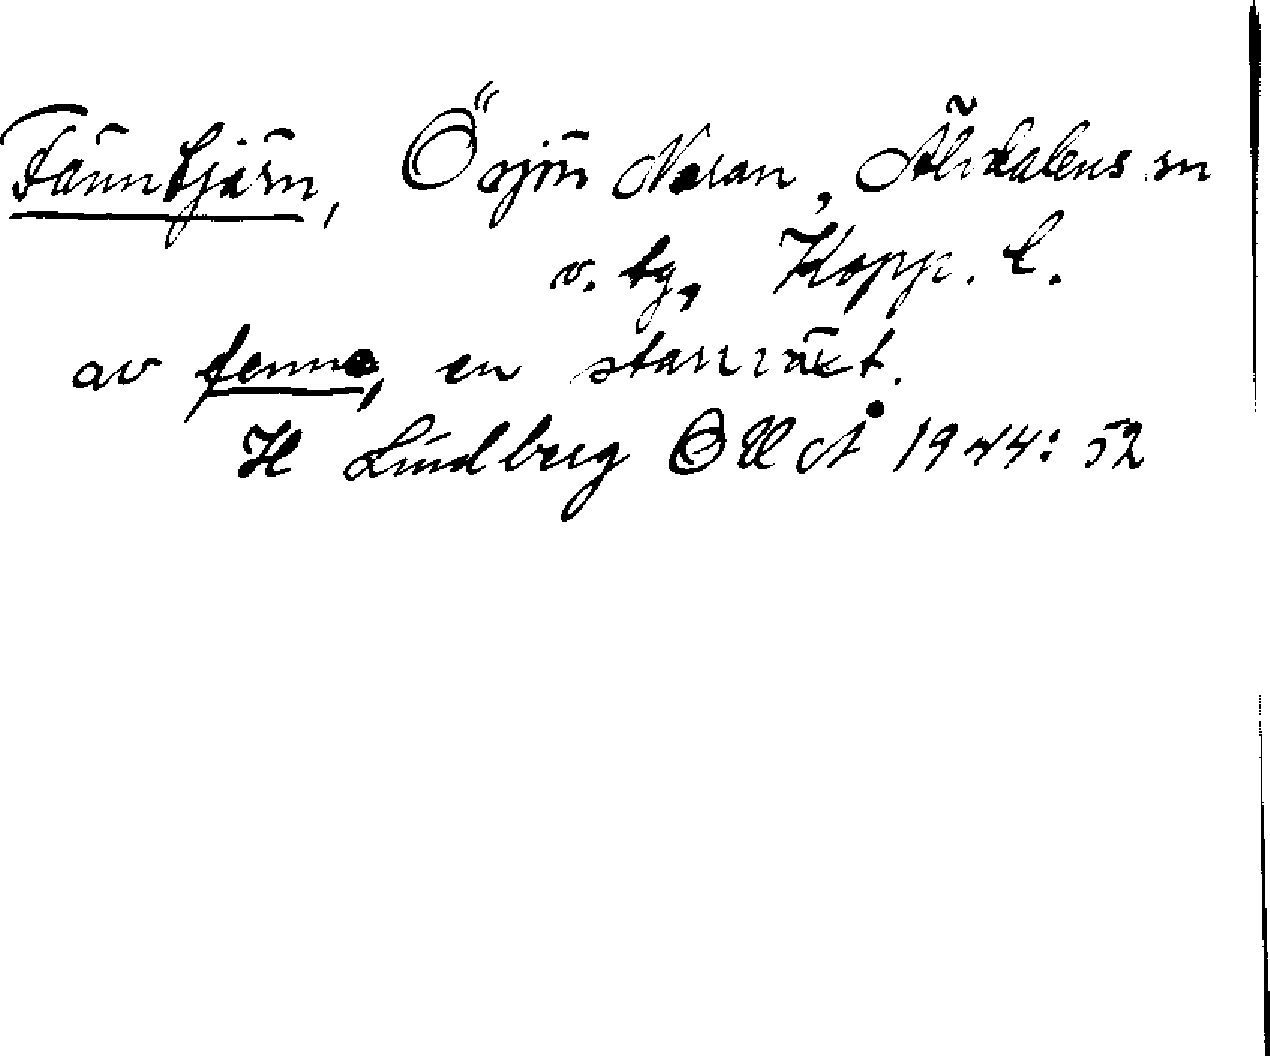 Fänntjärn, Ö sjön Noran, Älvdalens sn
o. tg, Kopp. l.
av fenne, en starrväxt.
H Lindberg ÖUÅ 1944: 52